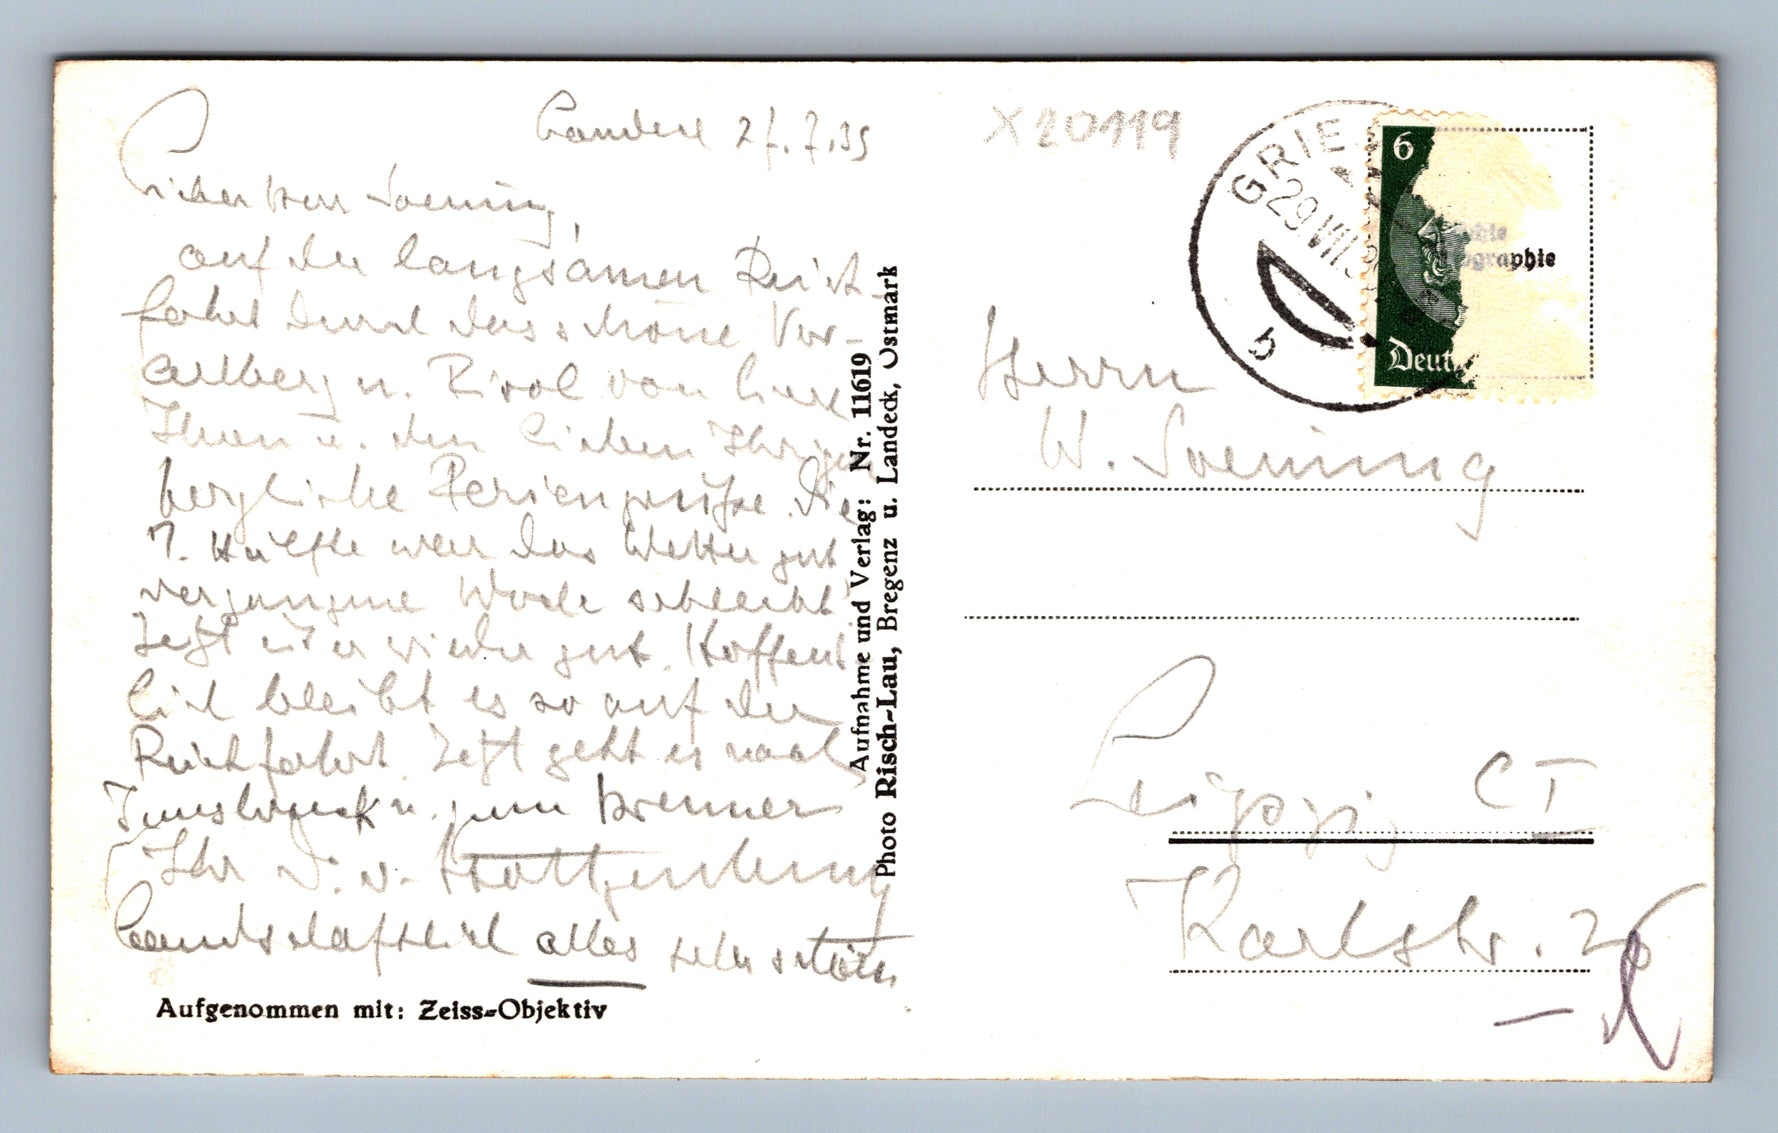 Landeck 27.7.39
Lieber Herr Soenning,
auf der langsamen Rück-
fahrt durch das schöne Vor-
arlberg u. Tirol von hier
Ihnen u. den lieben Ihrigen
herzliche Feriengrüße. Die
1. Hälfte war das Wetter gut
vergangene Woche schlecht
Jetzt ist er wieder gut. Hoffent-
lich bleibt es so auf der
Rückfahrt. Jetzt geht es nach
Innsbruck u. zum Brenner
Ihr
Landschaftlich alles sehr schön
Aufgenommen mit: Zeiss-Objektiv
Aufnahme und Verlag: Nr. 11619
Photo Risch-Lau, Bregenz u. Landeck, Ostmark
X20119
GRIE
29.VII.3
b
6
Deut
graphie
Herrn
W. Soenning
Leipzig C1
Karlstr. 26